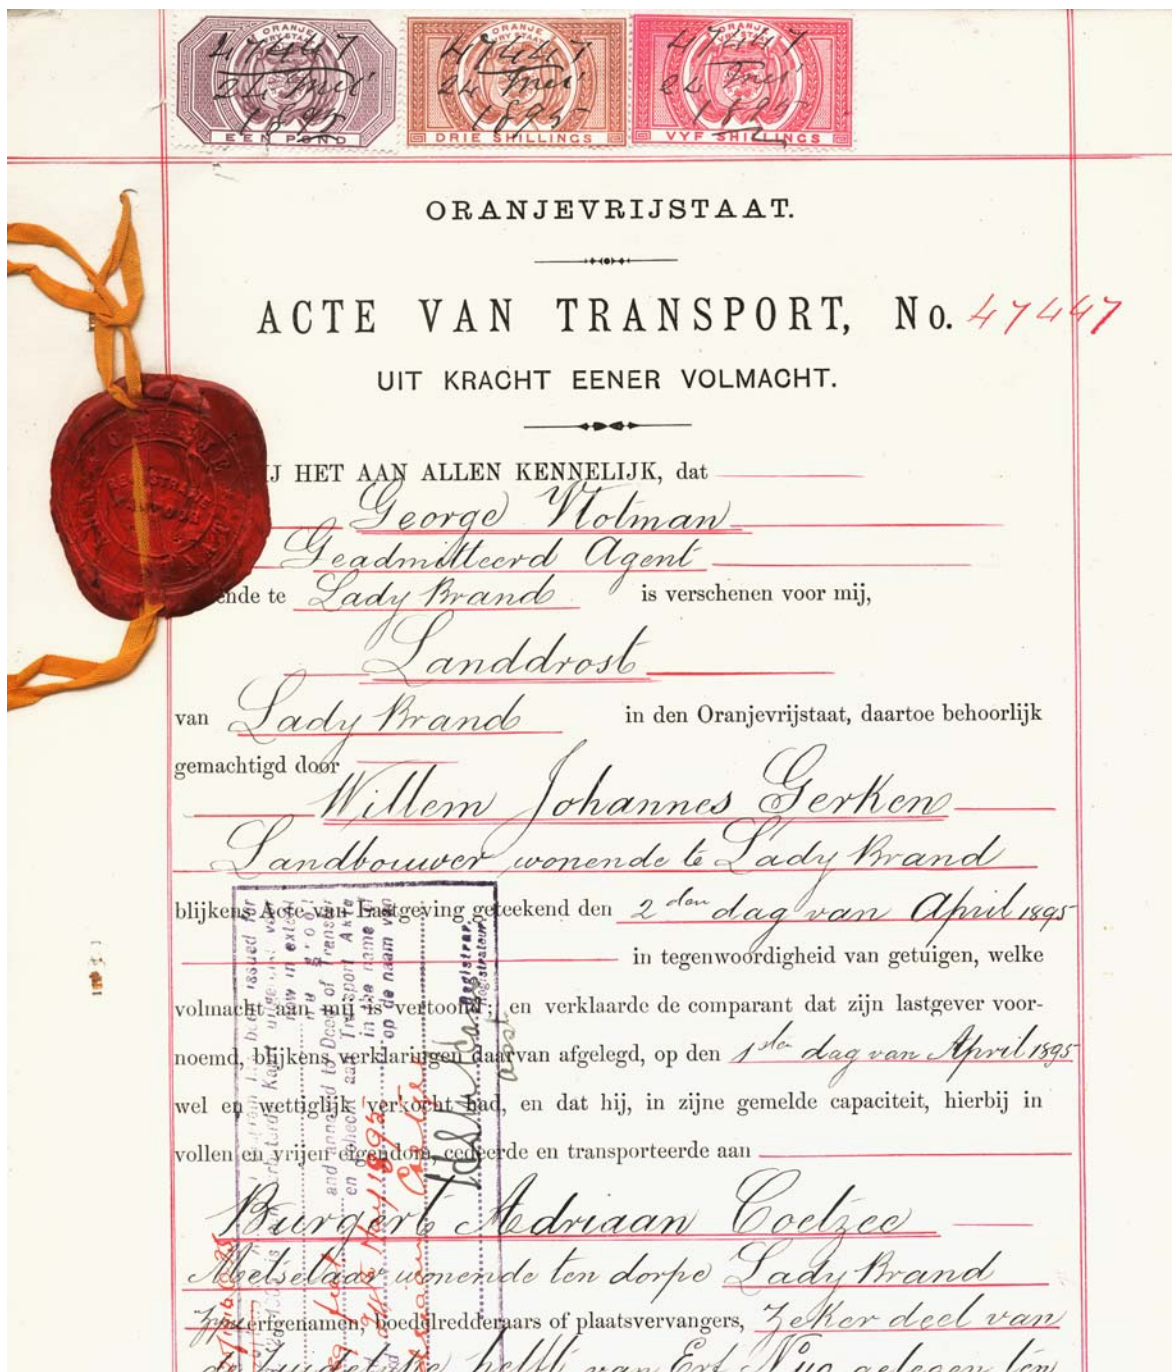 ORANJE
47447
24 Mei
1895
EEN POND
ORANJE
47447
24 Mei
1895
DRIE SHILLINGS
ORANJE
47447
24 Mei
1895
VYF SHILLINGS
ORANJEVRIJSTAAT.
ACTE VAN TRANSPORT, No. 47447
UIT KRACHT EENER VOLMACHT.
IJ HET AAN ALLEN KENNELIJK, dat
George
Geadmitteerd Agent
ende te Lady Brand is verschenen voor mij,
Landdrost
van Lady Brand in den Oranjevrijstaat, daartoe behoorlijk
gemachtigd door
Willem Johannes Gerken
Landbouwer wonende te Lady Brand
blijkens Acte van Lastgeving geteekend den 2den dag van April 1895
in tegenwoordigheid van getuigen, welke
volmacht aan mij is vertoond; en verklaarde de comparant dat zijn lastgever voor-
noemd, blijkens verklaringen daarvan afgelegd, op den 1sten dag van April 1895
wel en wettiglijk verkocht had, en dat hij, in zijne gemelde capaciteit, hierbij in
vollen en vrijen eigendom, cedeerde en transporteerde aan
Burgert Adriaan Coetzee
Metselaar wonende ten dorpe Lady Brand
erfgenamen, boedelredderaars of plaatsvervangers, Zeker deel van
helft van Erf gelegen ten
issued for
now in
and annexed to Deed of Transfer
en gehecht aan Transport Akte
in the name of
op de naam van
Registrar.
Registrateur.